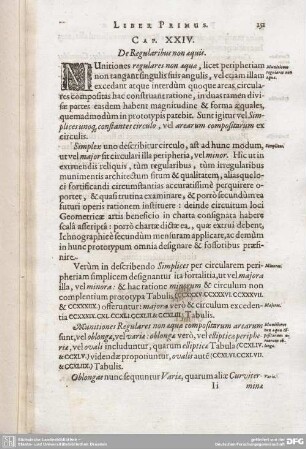 LIBER PRIMUS. 251
CAP. XXIV.
De Regularibus non æquis.
MUnitiones regulares non æquæ, licet peripheriam
non tangant singulis suis angulis, vel etiam illam
excedant atque interdum quoque areas, circula-
res compositas hac constituant ratione, in duas tamen divi-
sæ partes easdem habent magnitudine & forma æquales,
quemadmodum in prototypis patebit. Sunt igitur vel Sim-
plices uno
constanter circulo, vel arearum compositarum ex
circulis.
Simplex uno describitur circulo, ast ad hunc modum,
ut vel major sit circulari illa peripheria, vel minor. Hic ut in
extruendis reliquis, tùm regularibus, tùm irregularibus
munimentis architectum situm & qualitatem, aliasque lo-
ci fortificandi circumstantias accuratissimè perquirere o-
portet, & quasi rutina examinare, & porrò secundùm ea
futuri operis rationem instituere; deinde circuitum loci
Geometricæ artis beneficio in charta consignata habere
scalâ asscriptâ: porrò chartæ dictæ ea, quæ extrui debent,
Ichnographicè secundùm mensuram applicare, ac demùm
in hunc prototypum omnia designare & fossoribus præsi-
nire.
Verùm in describendo Simplices per circularem peri-
pheriam simplicem designantur ita fortalitia, ut vel majora
illa, vel minora: & hac ratione minorum & circulum non
complentium prototypa Tabulis, (CCXXXV CCXXXVI. CCXXXVII.
& CCXXXIIX.) offeruntur: majora verò & circulum exceden-
tia (CCXXXIX. CCXL CCXLI. CCXLII & CCXLIII.) Tabulis.
Munitiones Regulares non æquæ compositarum arearum
sunt, vel oblongæ, vel variæ: oblongæ verò, vel elliptica periphe-
ria, vel ovali includuntur, quarum elliptica Tabula (CCXLIV.
& CCXLV.) videndæ proponuntur, ovalis autē (CCXLVI. CCXLVII.
& CCXLIIX.) Tabulis.
Oblongas nunc sequuntur Variæ, quarum aliæ Curviter-
Ii mina
Munitiones
regulares non
æquæ.
Simplices.
Minores.
Majores.
Munitiones
non æquæ co-
positarum a-
rearum ob-
longæ.
Variæ.